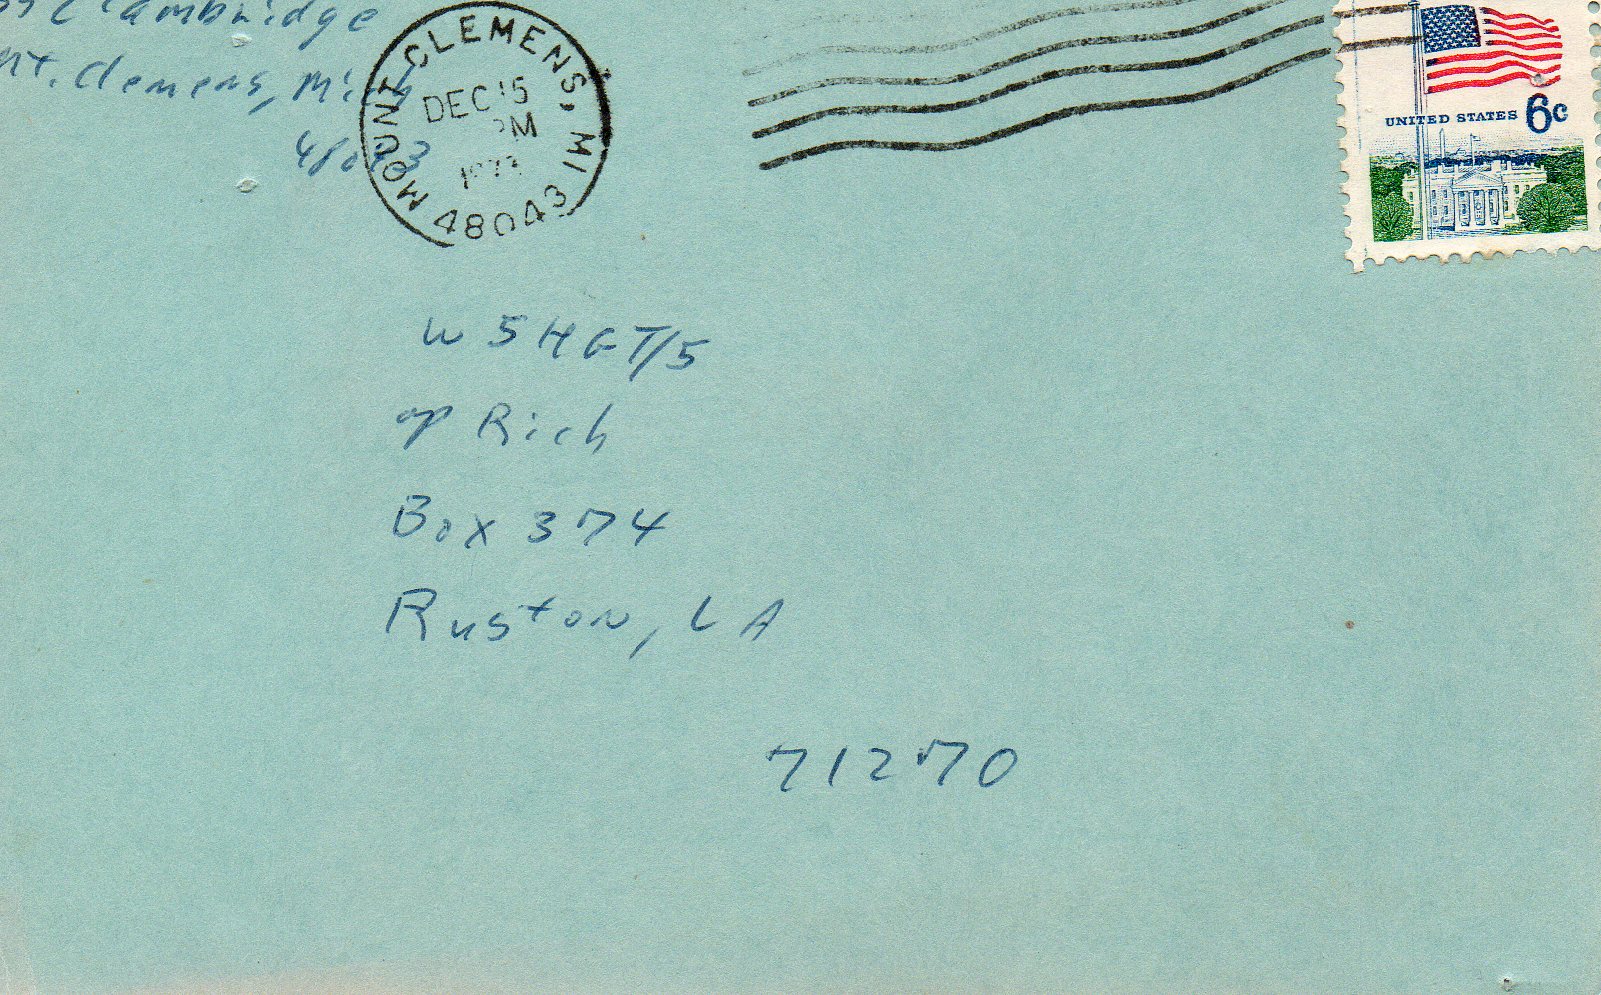 Cambridge
Mt. Clemens, Mich
48043
MOUNT CLEMENS, MI
DEC 15
PM
48043
UNITED STATES 6c
W5HGT/5
op Rich
Box 374
Ruston, LA
71270